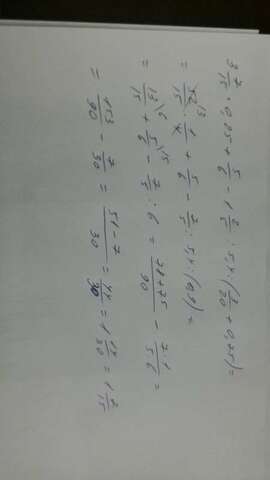 3 7/15 · 0,25 + 5/6 - 1 2/5 : 5,4 · (3/20 + 0,75) =
= 52/15 · 1/4 + 5/6 - 7/5 : 5,4 · (0,9) =
= 13/15 \6 + 5/6 \15 - 7/5 : 6 = 78+75/90 - 7·1/5·6 =
= 153/90 - 7/30 = 51-7/30 = 44/30 = 1 14/30 = 1 7/15